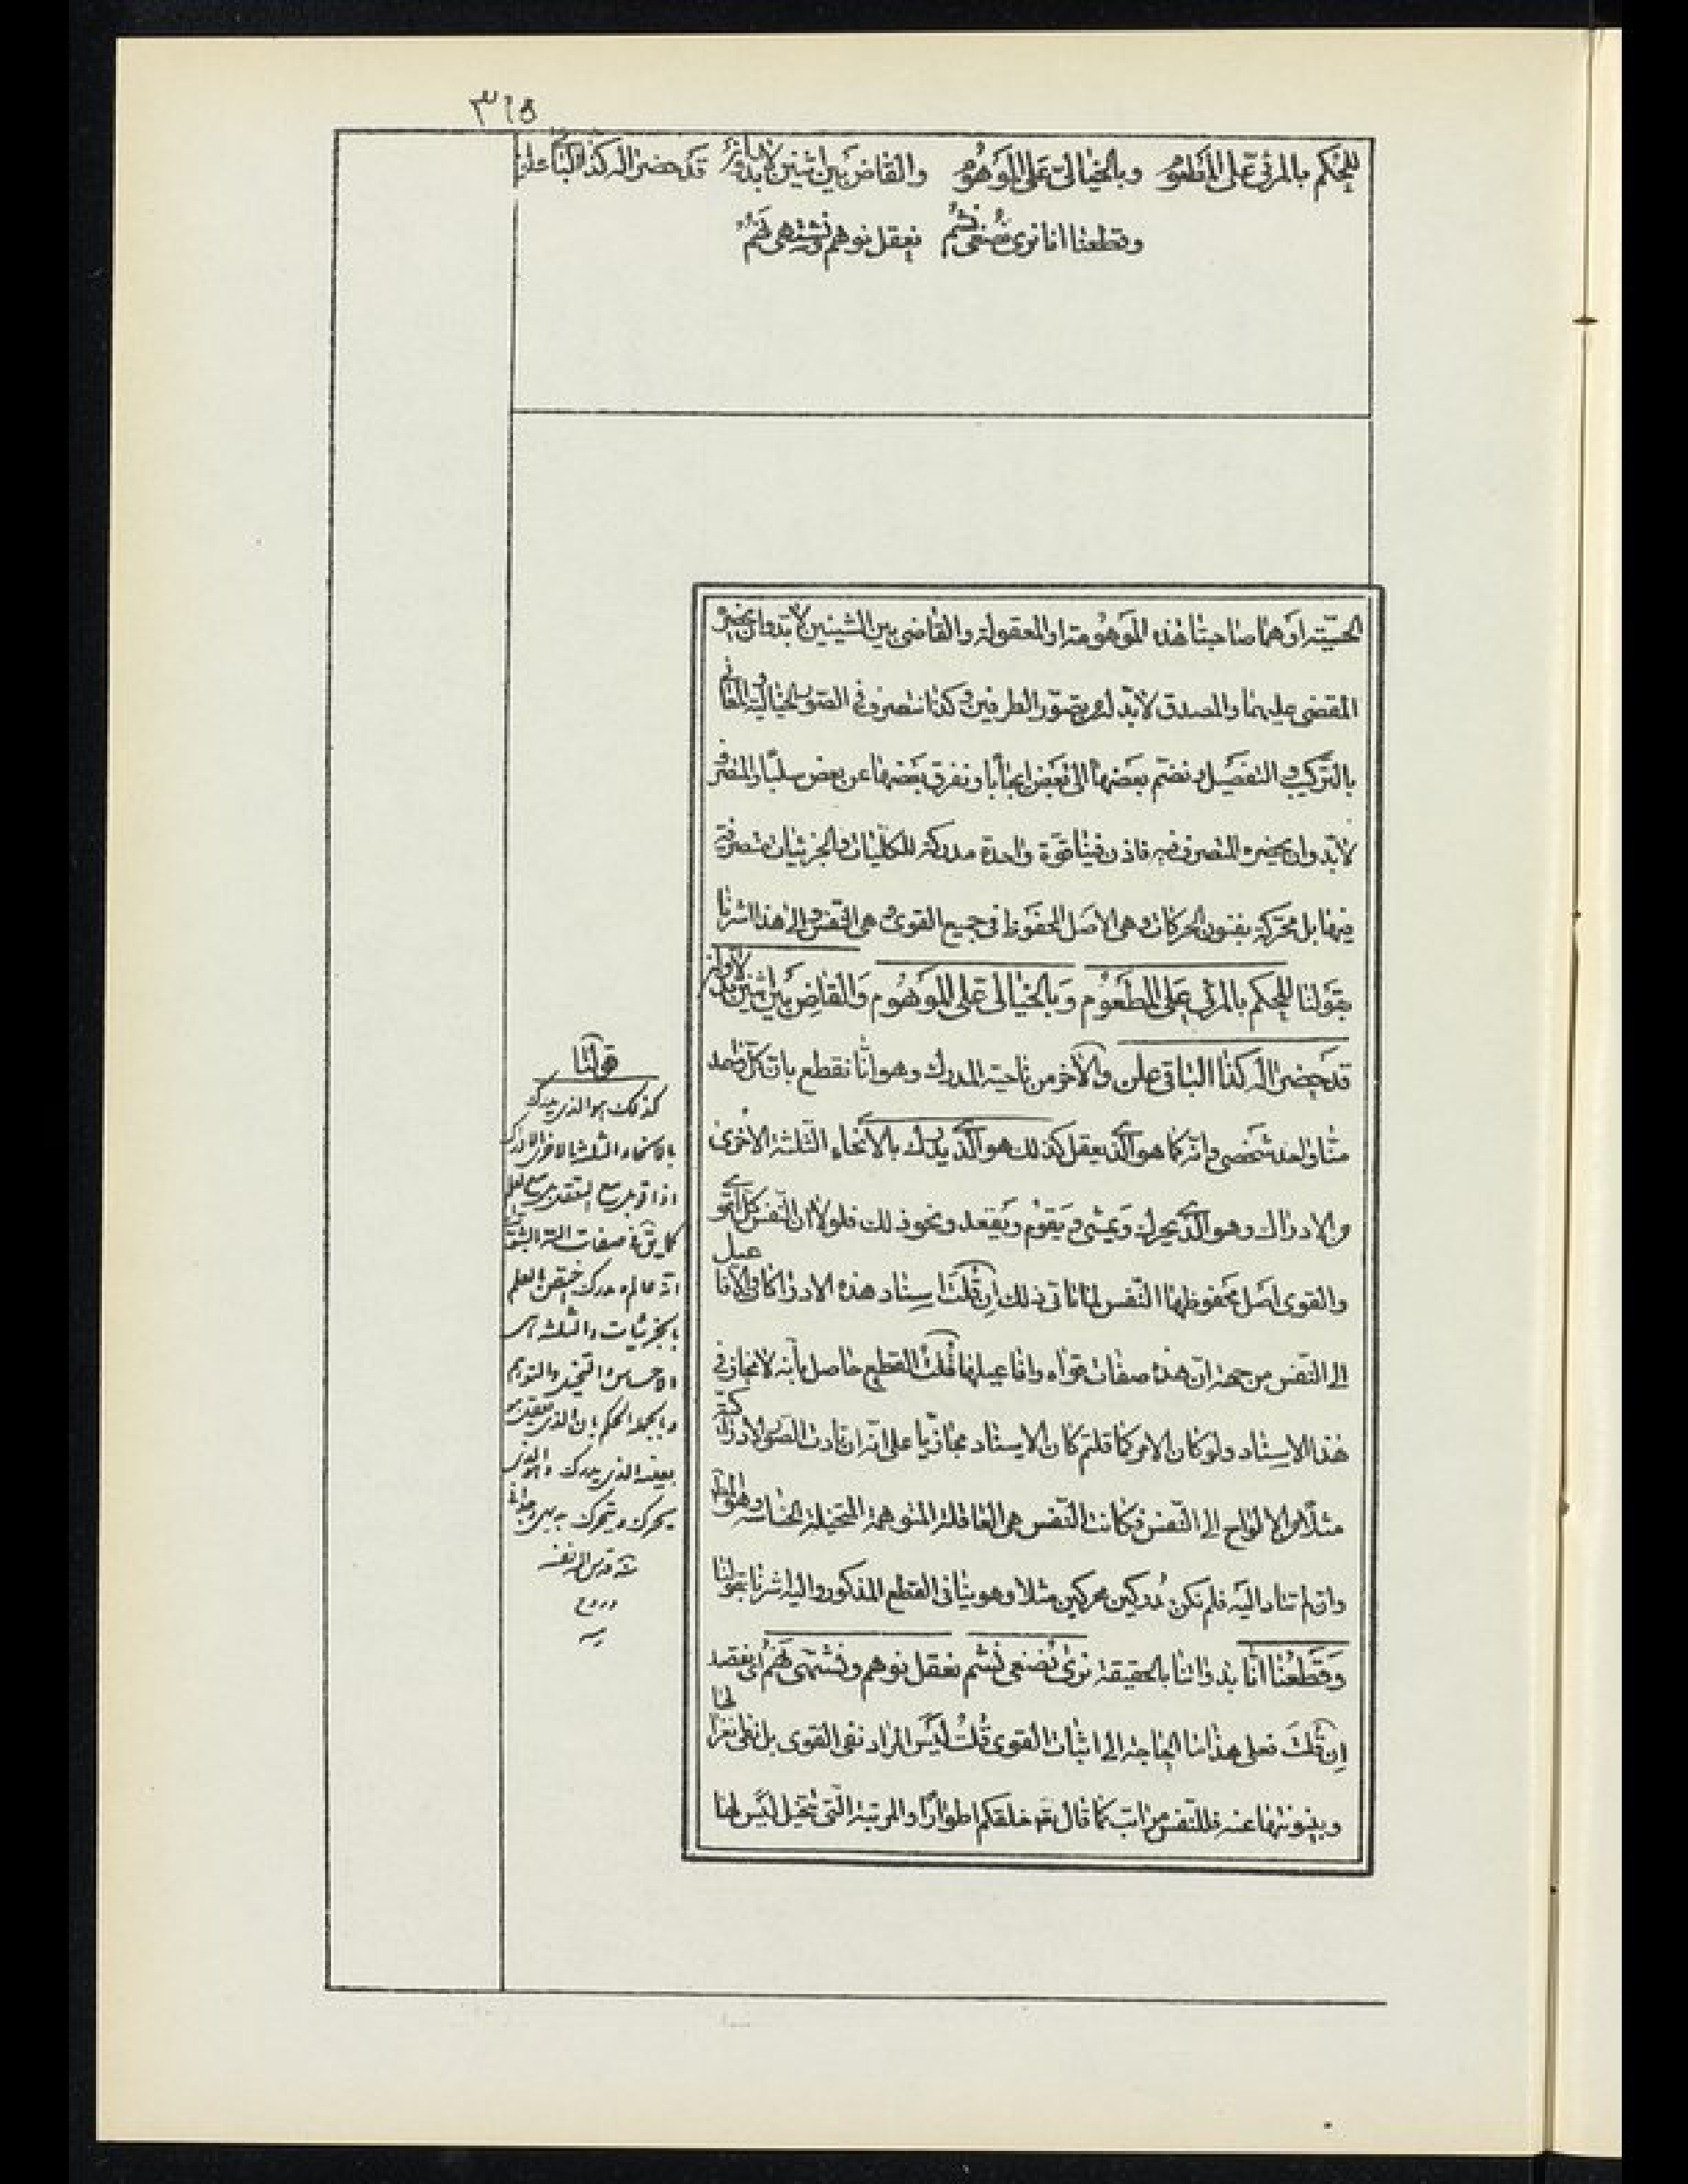 ٣١٥
للحكم بالمرئي على المطعوم وبالخيالي على الموهوم والقاض بين اثنين لابد وان قد حضرا له كذا الباقي علن
وقطعنا انا نرى نصغي نشم نعقل نوهم ونشتهي نهم
الحسية او هما صاحبتا هذه الموهومة او المعقولة والقاضي بين الشيئين لابد وان يحضره
المقضى عليهما والمصدق لابد له من تصور الطرفين وكذا نتصرف في الصور الخيالية والمعاني
بالتركيب والتفصيل ونضم بعضها الى بعض ايجابا ونفرق بعضها عن بعض سلبا والمتصرف
لابد وان يحضره المتصرف فيه فاذن فينا قوة واحدة مدركة للكليات والجزئيات متصرفة
فيها بل محركة بفنون الحركات وهي الاصل المحفوظ في جميع القوى هي النفس والى هذا اشرنا
بقولنا للحكم بالمرئي على المطعوم وبالخيالي على الموهوم والقاض بين اثنين
قد حضرا له كذا الباقي علن والآخر من ناحية المدرك وهو انا نقطع بان كل واحد
منا واحد شخصي وانه كما هو الذي يعقل كذلك هو الذي يدرك بالانحاء الثلثة الاخرى
من الادراك وهو الذي يحرك ويمشي ويقوم ويقعد ونحو ذلك فلولا ان النفس كل القوى
والقوى اصل محفوظها النفس لما تأتى ذلك ان قلت اسناد هذه الادراكات والافاعيل
الى النفس من جهة ان هذه صفات قواه وافاعيلها قلت القطع حاصل بانه لا مجاز في
هذا الاسناد ولو كان الامر كما قلتم كان الاسناد مجازيا على انه ان تأدت الصور الادراكية
مثلا من الالواح الى النفس فكانت النفس هي العاقلة المتوهمة المتخيلة الحساسة وهو المطلوب
وان لم تتاد اليه فلم نكن مدركين محركين مثلا وهو ينافي القطع المذكور واليه اشرنا بقولنا
وقطعنا انا بذواتنا بالحقيقة نرى نصغي نشم نعقل نوهم ونشتهي نهم اى نقصد
ان قلت فعلى هذا ما الحاجة الى اثبات القوى قلت ليس المراد نفي القوى بل نفي
وبينونتها عنه فللنفس مراتب كما قال تعه خلقكم اطوارا والمرتبة التي تتخيل ليس لها
قولنا
كذلك هو الذي يدرك
بالانحاء الثلثة الاخرى الادراك
اذا قوبل مع التعقل
كما يق في صفات الله
انه عالم ومدرك العلم
بالجزئيات والثلثة هى
الاحساس والتخيل والتوهم
وبالجملة الحكم بان الذي تعقل
بعينه الذي يدرك وهو الذي
يحرك ويتحرك
منه قدس الله نفسه
وروح